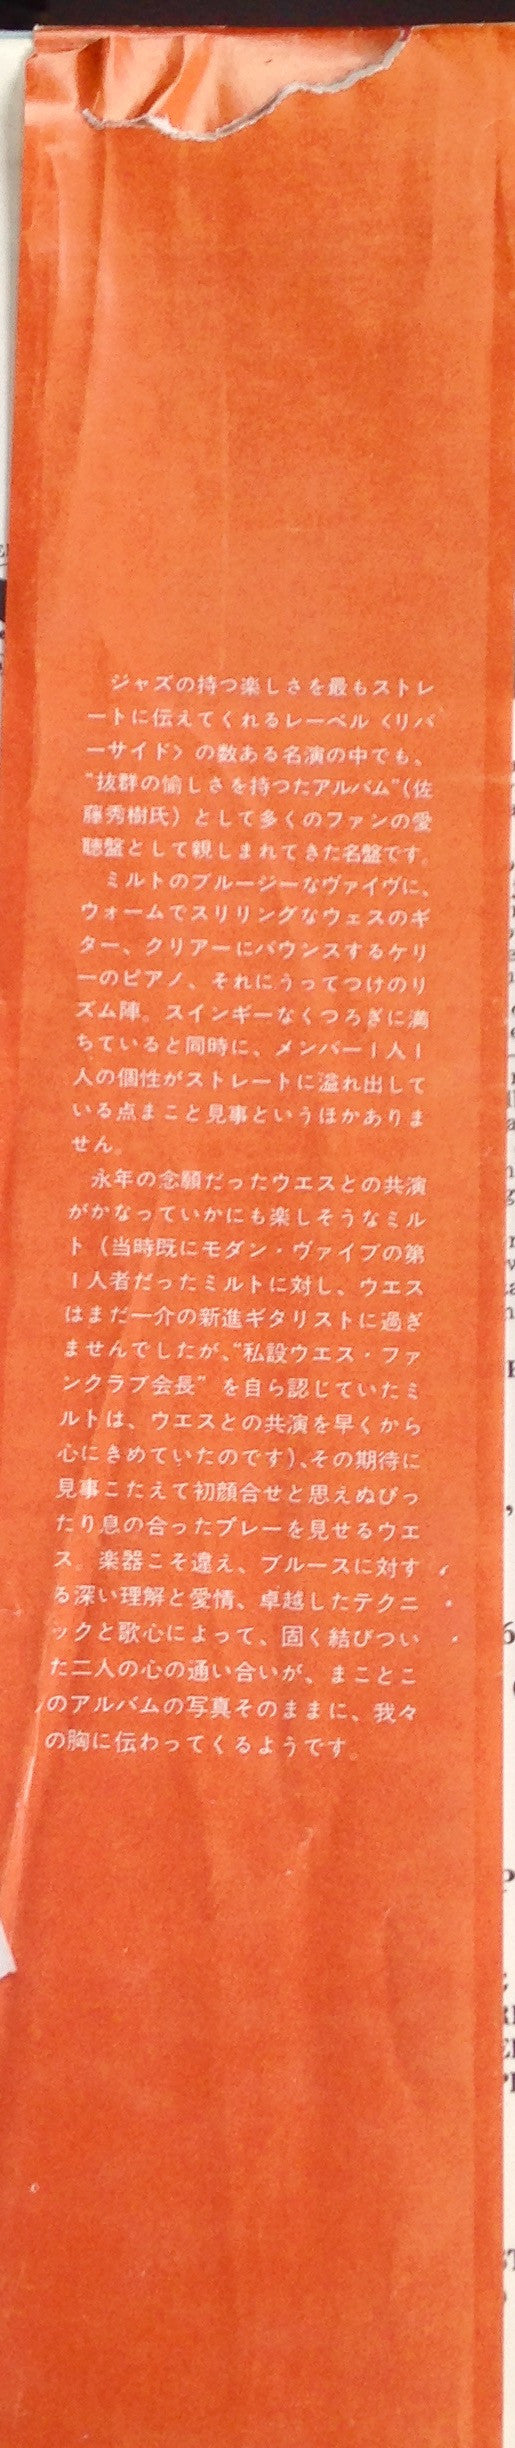 ジャズの持つ楽しさを最もストレ
ートに伝えてくれるレーベル〈リバ
ーサイド〉の数ある名演の中でも、
“抜群の愉しさを持つたアルバム”(佐
藤秀樹氏)として多くのファンの愛
聴盤として親しまれてきた名盤です。
ミルトのブルージーなヴァイヴに、
ウォームでスリリングなウェスのギ
ター、クリアーにバウンスするケリ
ーのピアノ、それにうってつけのリ
ズム陣。スインギーなくつろぎに満
ちていると同時に、メンバー1人1
人の個性がストレートに溢れ出して
いる点まこと見事というほかありま
せん。
永年の念願だったウエスとの共演
がかなっていかにも楽しそうなミル
ト(当時既にモダン・ヴァイブの第
1人者だったミルトに対し、ウエス
はまだ一介の新進ギタリストに過ぎ
ませんでしたが、“私設ウエス・ファ
ンクラブ会長”を自ら認じていたミ
ルトは、ウエスとの共演を早くから
心にきめていたのです)、その期待に
見事こたえて初顔合せと思えぬぴっ
たり息の合ったプレーを見せるウエ
ス。楽器こそ違え、ブルースに対す
る深い理解と愛情、卓越したテクニ
ックと歌心によって、固く結びつい
た二人の心の通い合いが、まことこ
のアルバムの写真そのままに、我々
の胸に伝わってくるようです。